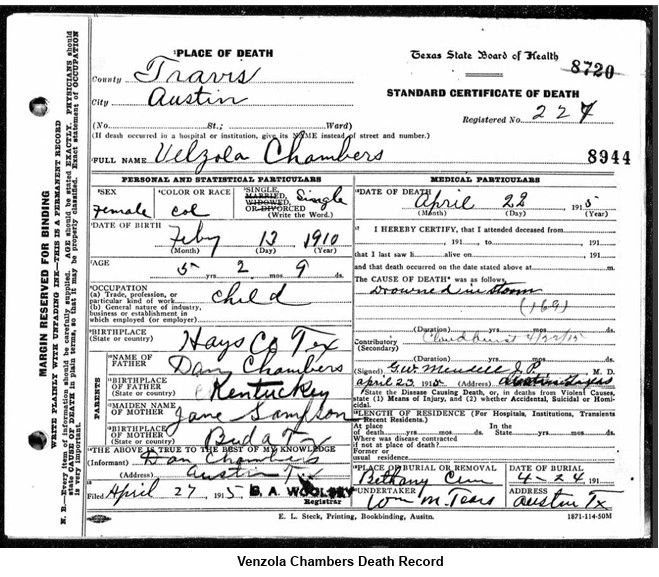 MARGIN RESERVED FOR BINDING
WRITE PLAINLY WITH UNFADING INK—THIS IS A PERMANENT RECORD
N. B.—Every item of information should be carefully supplied. AGE should be stated EXACTLY. PHYSICIANS should
state CAUSE OF DEATH in plain terms, so that it may be properly classified. Exact statement of OCCUPATION
is very important.
PLACE OF DEATH
County Travis
City Austin
Texas State Board of Health
8720
STANDARD CERTIFICATE OF DEATH
Registered No. 227
(No. St.; Ward)
(If death occurred in a hospital or institution, give its NAME instead of street and number.)
FULL NAME Velzola Chambers
8944
PERSONAL AND STATISTICAL PARTICULARS
SEX
Female
COLOR OR RACE
col
SINGLE,
MARRIED,
WIDOWED,
OR DIVORCED
(Write the Word.)
Single
DATE OF BIRTH
Feby 13 1910
(Month) (Day) (Year)
AGE
5 yrs. 2 mos. 9 ds.
OCCUPATION
(a) Trade, profession, or
particular kind of work
(b) General nature of industry,
business or establishment in
which employed (or employer)
child
BIRTHPLACE
(State or country)
Hays Co Tex
PARENTS
NAME OF
FATHER
Dan Chambers
BIRTHPLACE
OF FATHER
(State or country)
Kentuckey
MAIDEN NAME
OF MOTHER
Jane Sampson
BIRTHPLACE
OF MOTHER
(State or country)
Buda Tx
THE ABOVE IS TRUE TO THE BEST OF MY KNOWLEDGE
(Informant) Dan Chambers
(Address) Austin Tx
Filed April 27 1915 B. A. WOOLSEY
Registrar
MEDICAL PARTICULARS
DATE OF DEATH
April 22 1915
(Month) (Day) (Year)
I HEREBY CERTIFY, that I attended deceased from
, 191 , to , 191 ,
that I last saw h alive on , 191 ,
and that death occurred on the date stated above at m.
The CAUSE OF DEATH was as follows,
Drowned in storm
(169)
(Duration) yrs. mos. ds.
Contributory
(Secondary)
Cloudburst 4/22/15
(Duration) yrs. mos. ds.
(Signed) G.W. Mendell J.P. M. D.
april 23 1915 (Address) Austin Texas
State the Disease Causing Death, or, in deaths from Violent Causes,
state (1) Means of Injury, and (2) whether Accidental, Suicidal or Homi-
cidal.
LENGTH OF RESIDENCE (For Hospitals, Institutions, Transients
or Recent Residents.)
At place In the
of death yrs. mos. ds. State yrs. mos. ds.
Where was disease contracted
if not at place of death?
Former or
usual residence
PLACE OF BURIAL OR REMOVAL
Bethany Cem
DATE OF BURIAL
4-24 191
UNDERTAKER
Wm M. Tears
ADDRESS
Austin Tx
E. L. Steck, Printing, Bookbinding, Austin.
1871-114-50M
Venzola Chambers Death Record